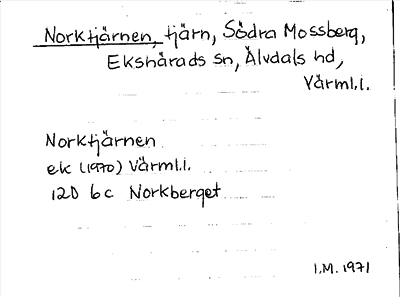 Norktjärnen, tjärn, Södra Mossberg,
Ekshärads sn, Älvdals hd,
Värml.l.
Norktjärnen
ek (1970) Värml.l.
12D 6c Norkberget
I.M. 1971